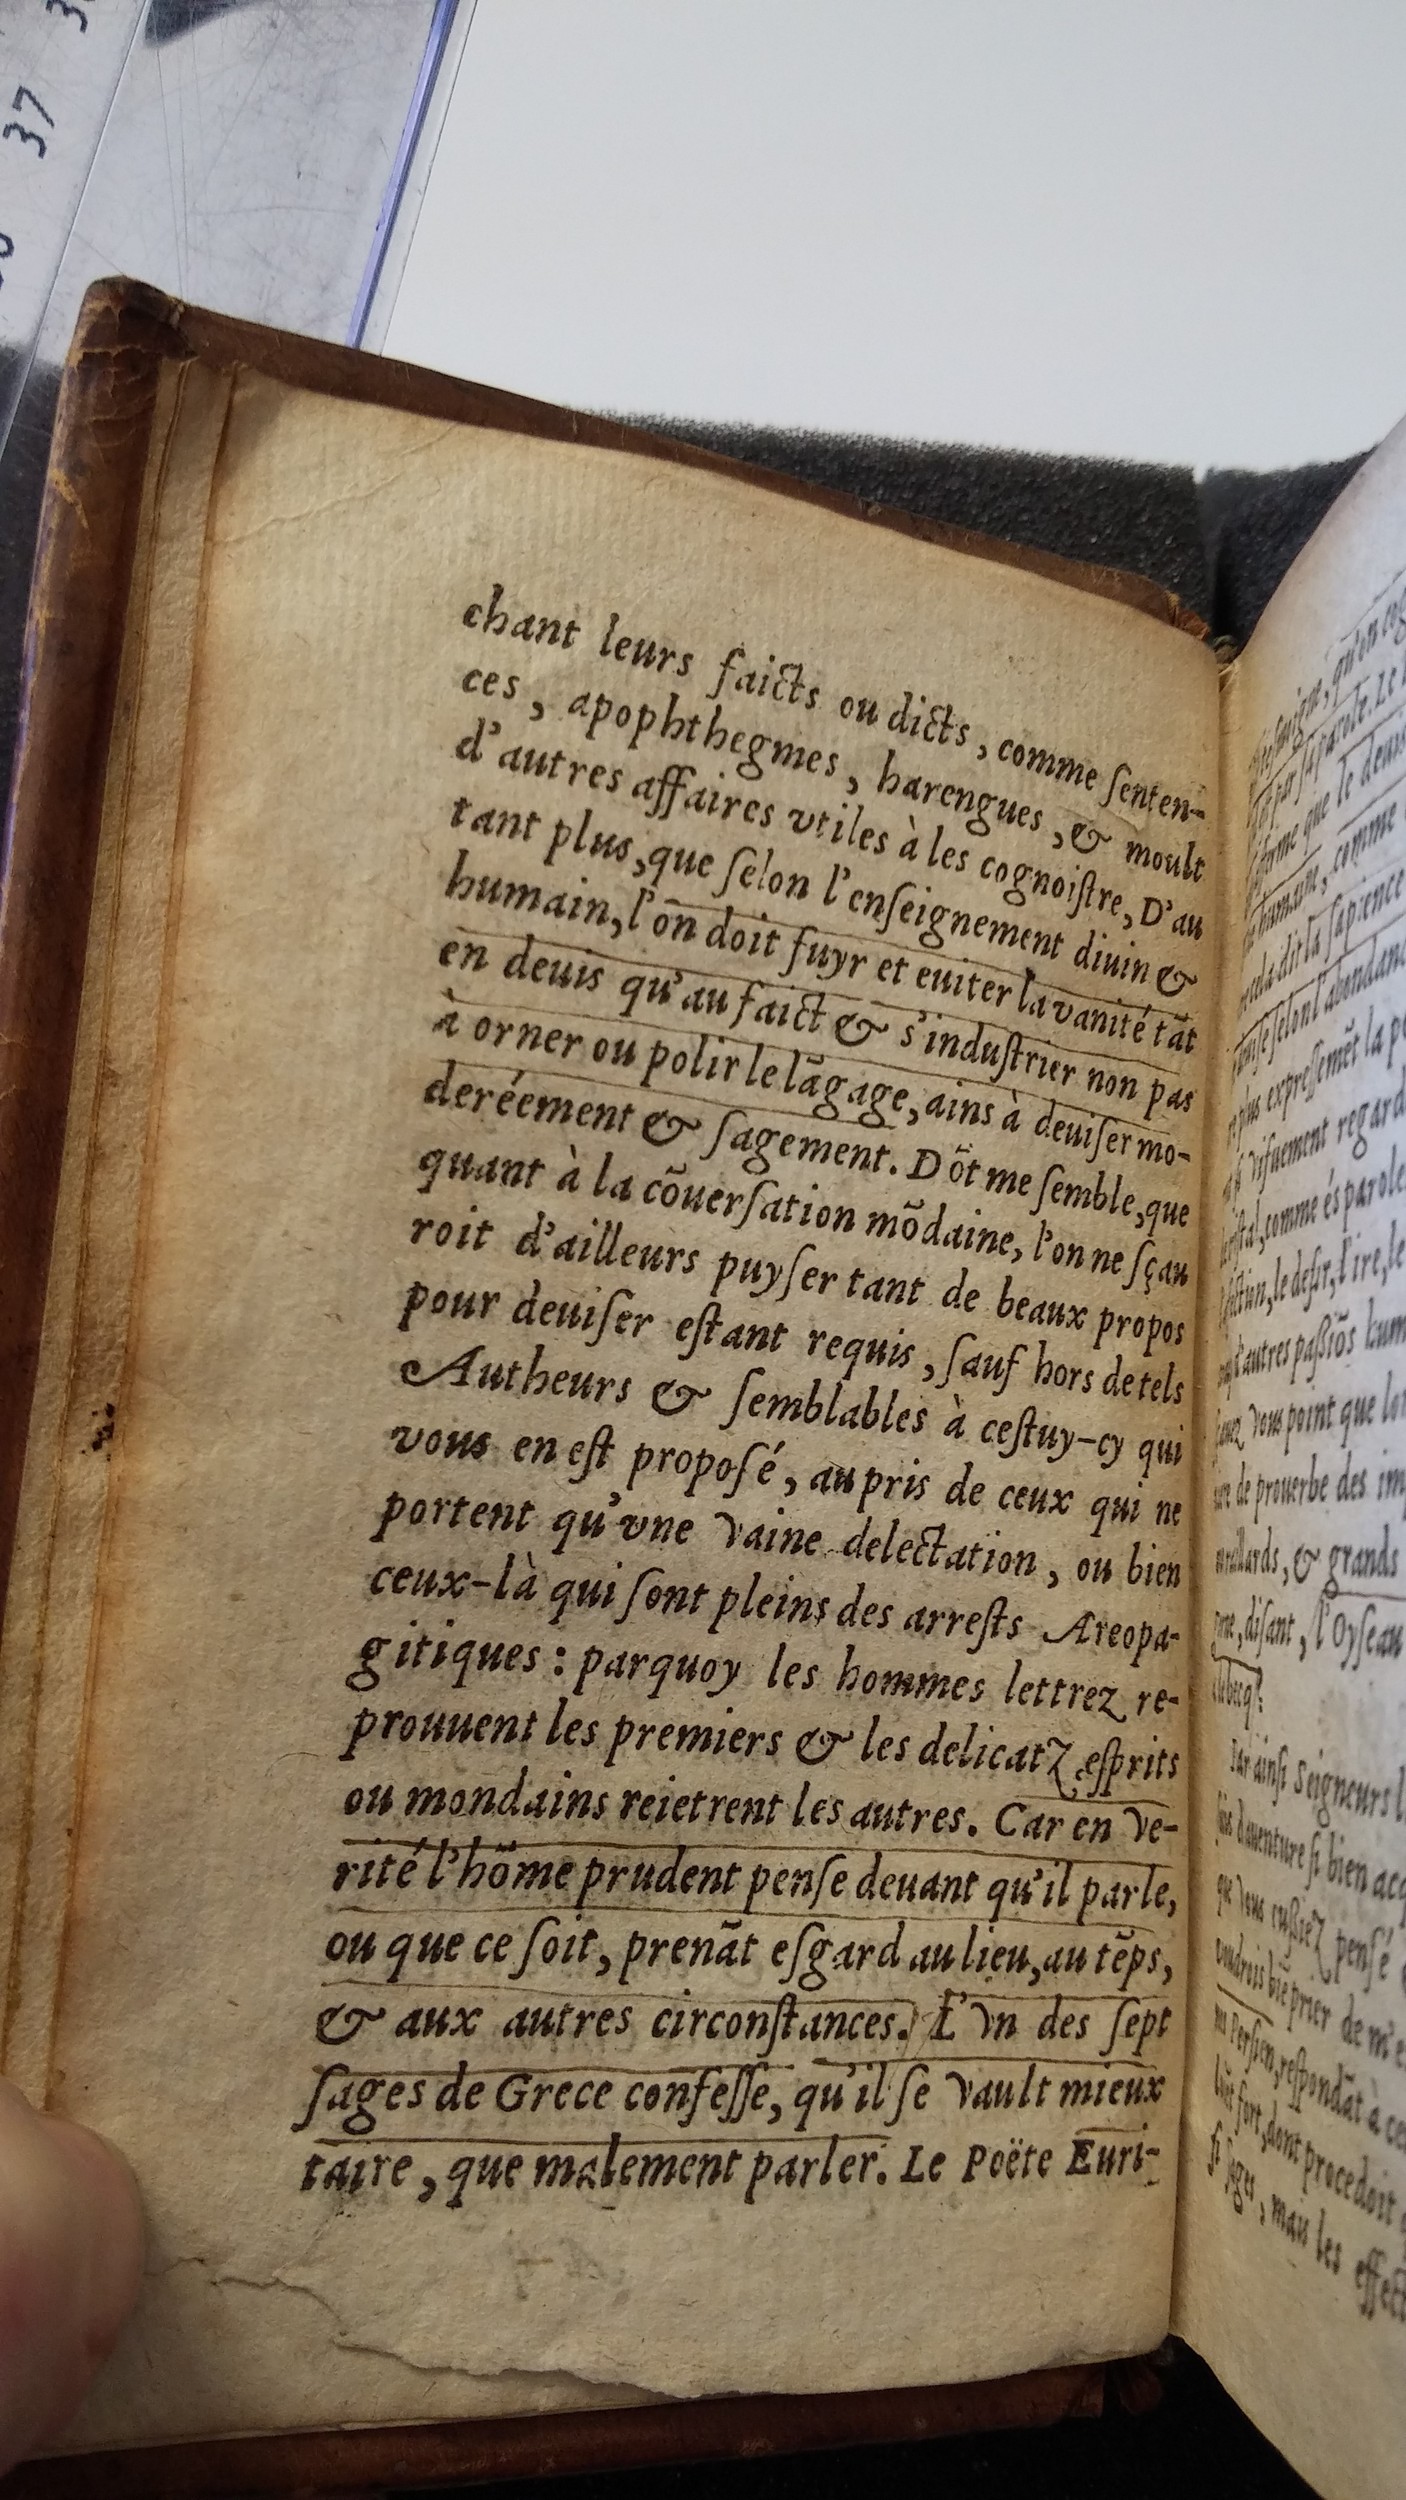 37
chant leurs faicts ou dicts, comme ſenten-
ces, apophthegmes, harengues, & moult
d'autres affaires vtiles à les cognoiſtre, D'au
tant plus, que ſelon l'enſeignement diuin &
humain, l'on doit fuyr et euiter la vanité tāt
en deuis qu'au faict & s'induſtrier non pas
à orner ou polir le lāgage, ains à deuiſer mo-
deréement & ſagement. Dōt me ſemble, que
quant à la cōuerſation mōdaine, l'on ne ſçau
roit d'ailleurs puyſer tant de beaux propos
pour deuiſer eſtant requis, ſauf hors de tels
Autheurs & ſemblables à ceſtuy-cy qui
vous en eſt propoſé, au pris de ceux qui ne
portent qu'vne vaine delectation, ou bien
ceux-là qui ſont pleins des arreſts Areopa-
gitiques: parquoy les hommes lettrez re-
prouuent les premiers & les delicatz eſprits
ou mondains reietrent les autres. Car en ve-
rité l'hōme prudent penſe deuant qu'il parle,
ou que ce ſoit, prenāt eſgard au lieu, au tēps,
& aux autres circonſtances. L'vn des ſept
ſages de Grece confeſſe, qu'il ſe vault mieux
taire, que malement parler. Le Poëte Euri-
qu'en
par ſa parole. Le
que le deuis
humaine, comme
dit la ſapience
ſelon l'abondanc
plus expreſſemēt la
viſuement regard
comme és parole
le deſir, l'ire, le
d'autres paſſiōs hum
vous point que lor
de prouerbe des im
& grands
diſant, l'Oyſeau
Par ainſi Seigneurs
d'auenture ſi bien acq
que vous euſsiez penſé
voudrois biē prier de m'e
Perſien, reſpondāt à ce
fort, dont procedoit
ſi ſages, mais les effect